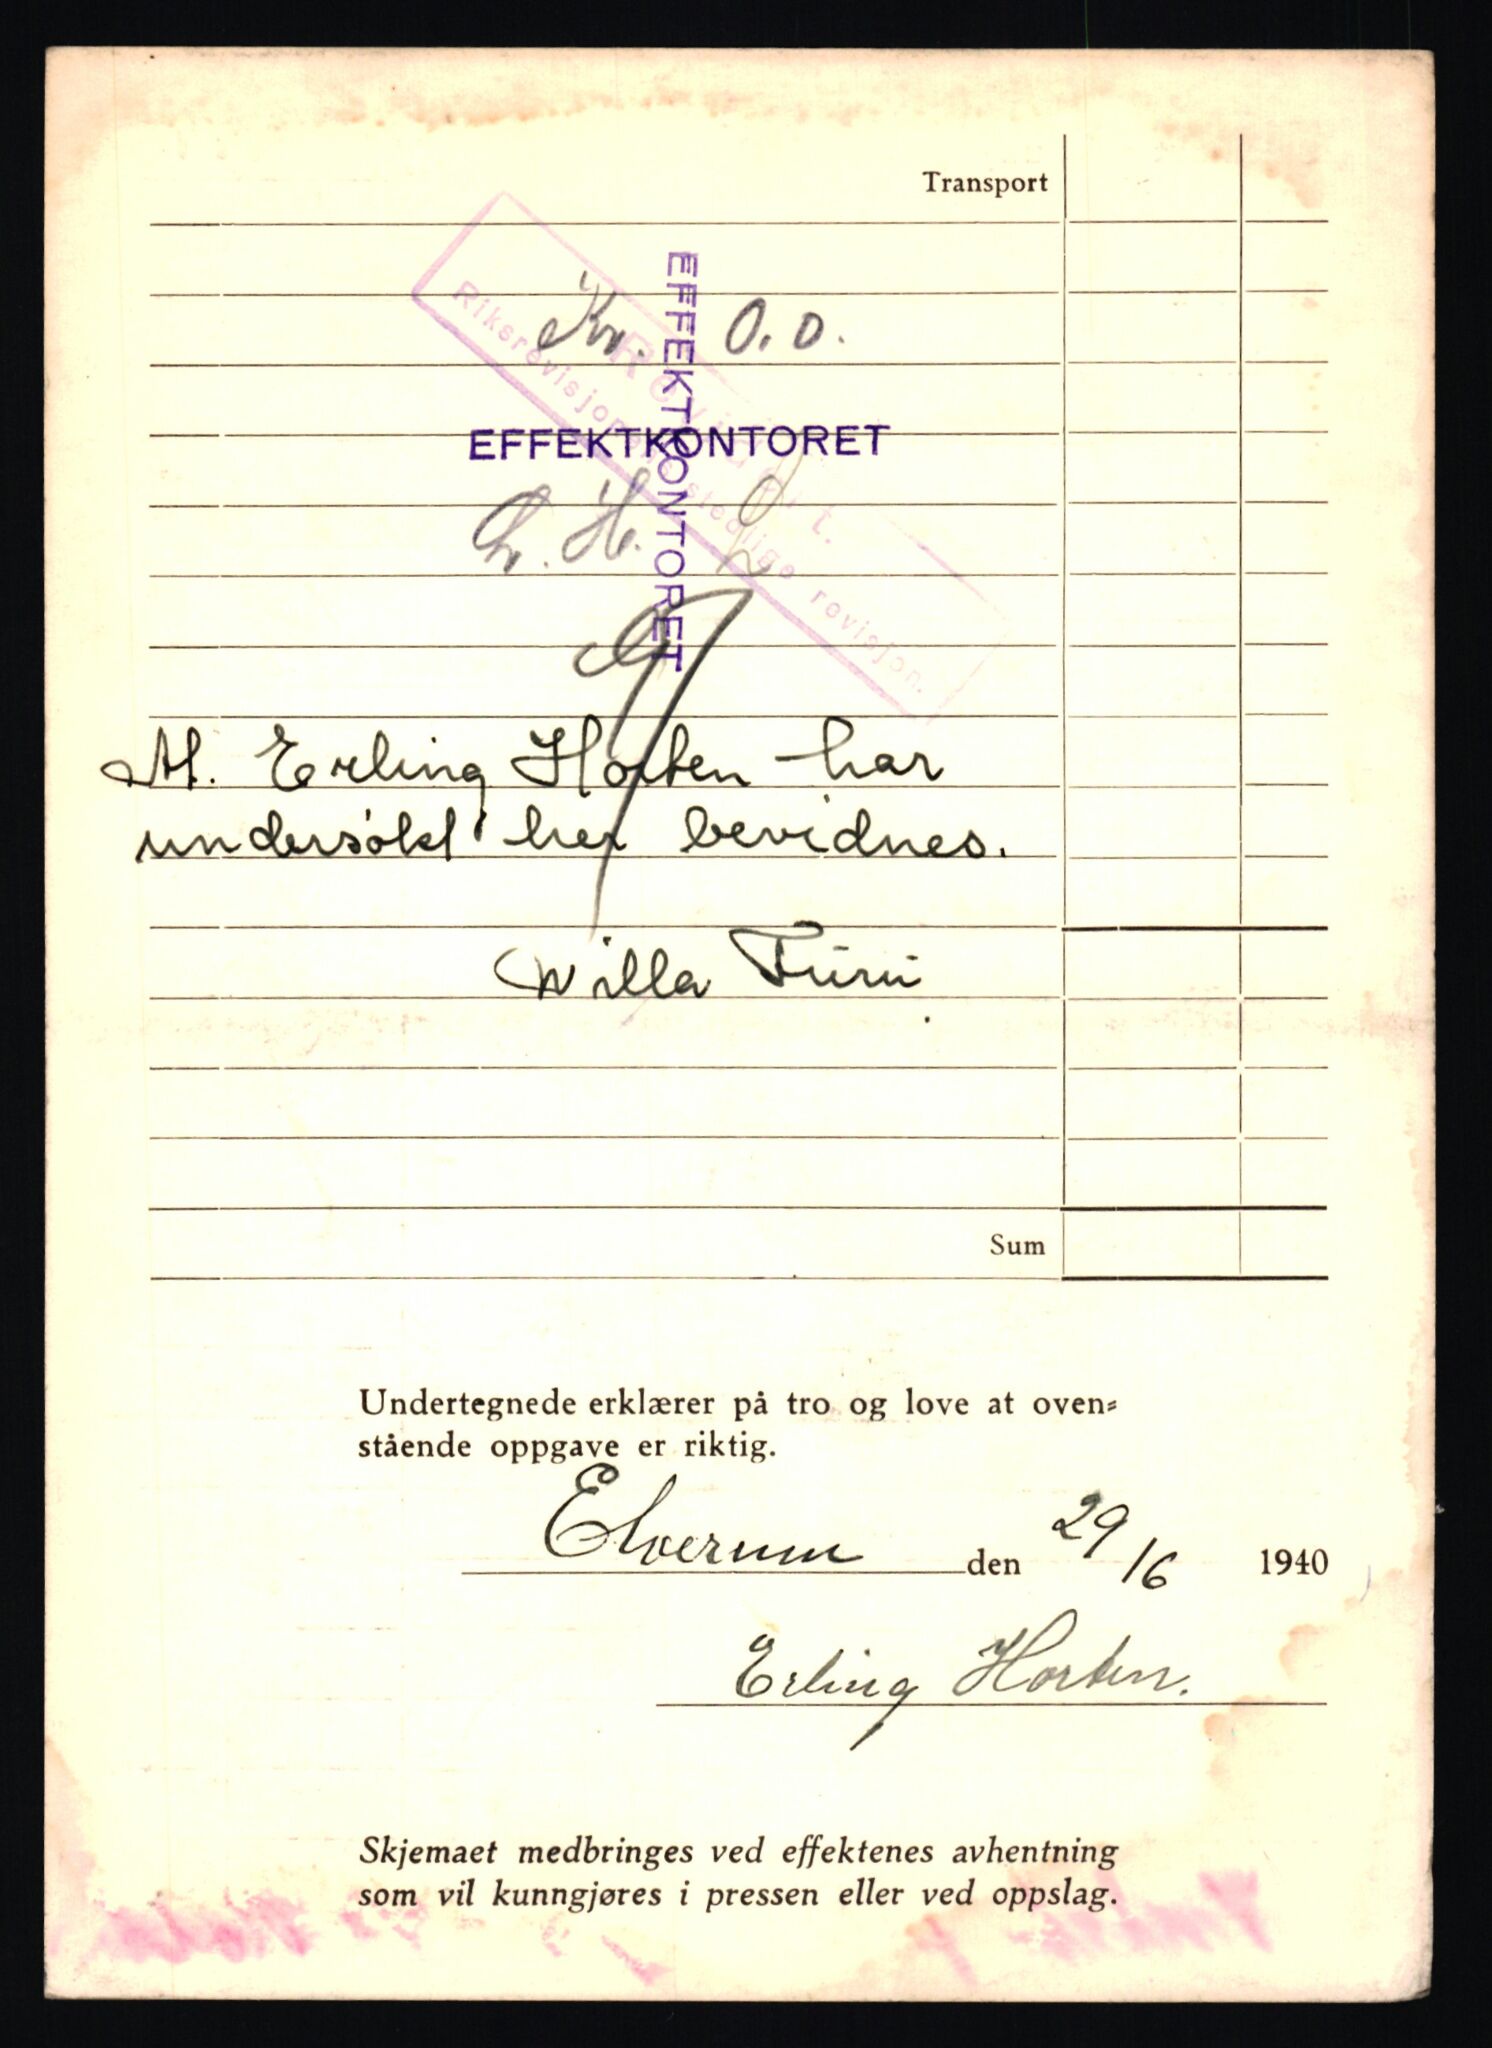 Transport
Kr. 0.0.
Revidert.
Riksrevisjonens stedlige revisjon.
EFFEKTKONTORET
EFFEKTKONTORET
At. Erling Horten har
undersøkt her bevidnes.
Willa Furu
Sum
Undertegnede erklærer på tro og love at oven-
stående oppgave er riktig.
Elverum den 29/6 1940
Erling Horten.
Skjemaet medbringes ved effektenes avhentning
som vil kunngjøres i pressen eller ved oppslag.